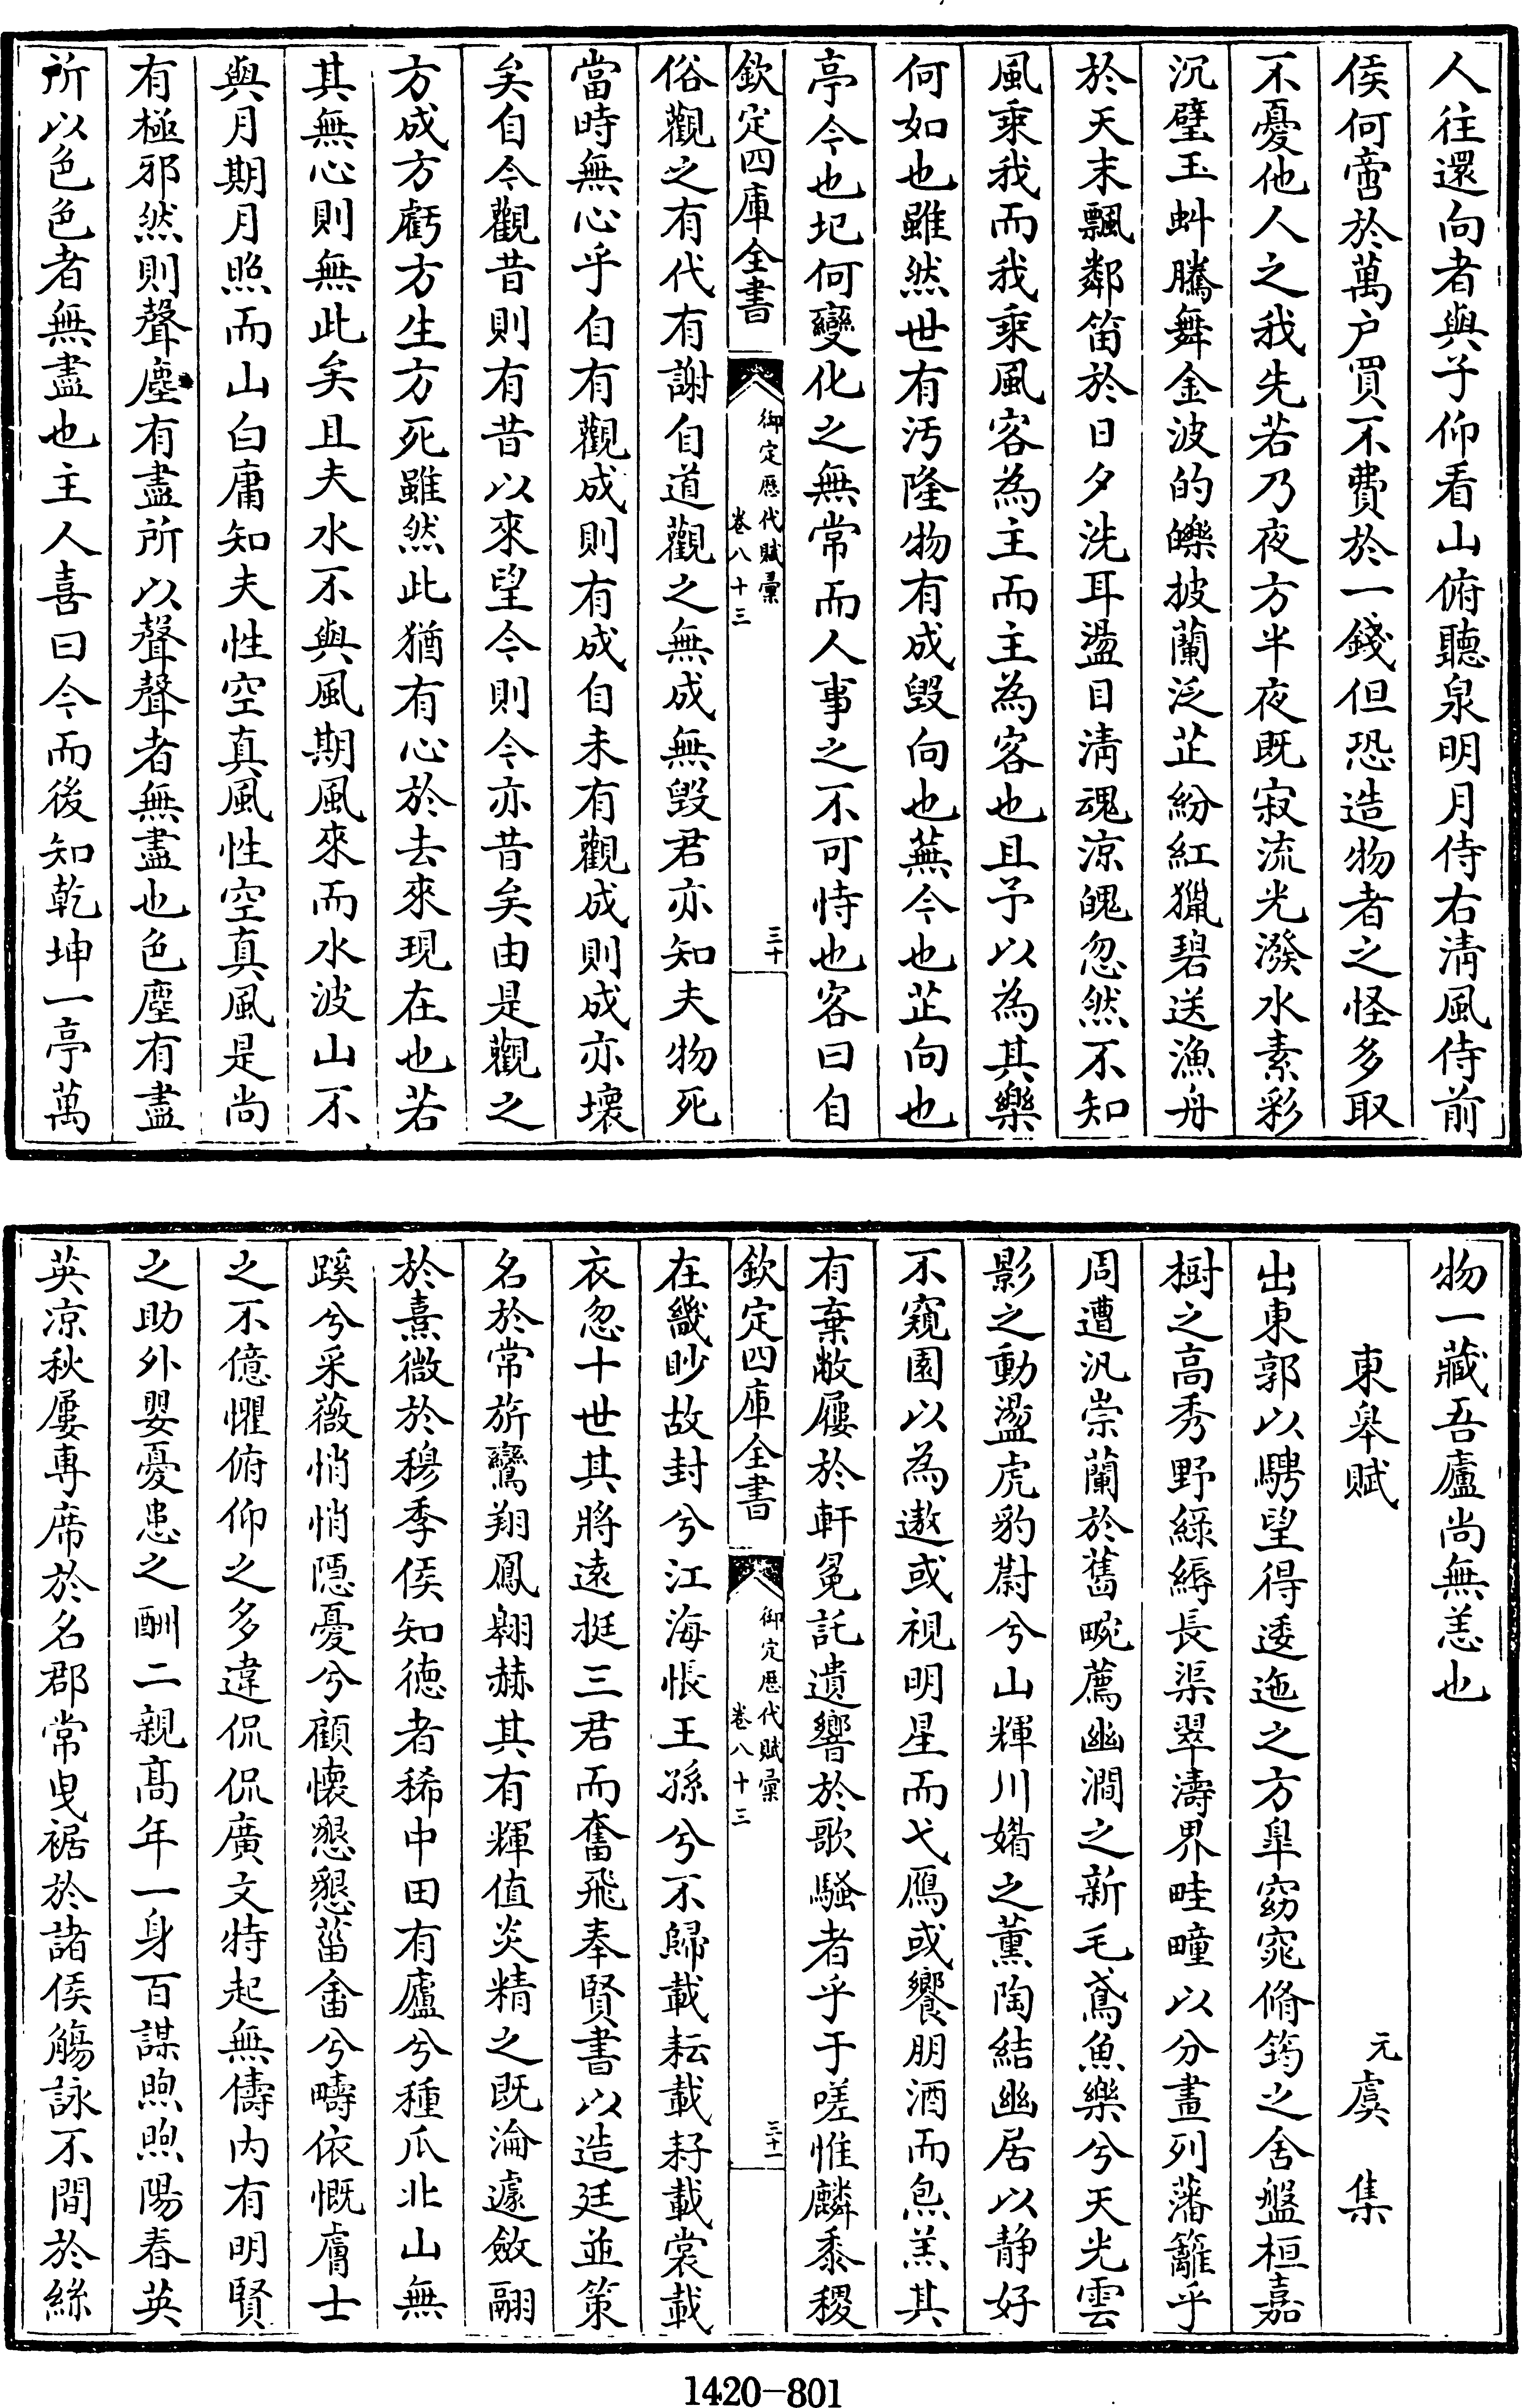 人往還向者與子仰看山俯聽泉明月侍右清風侍前
侯何啻於萬户買不費於一錢但恐造物者之怪多取
不憂他人之我先若乃夜方半夜既寂流光潑水素彩
沉璧玉蚪騰舞金波的皪披蘭泛芷紛紅獵碧送漁舟
於天末飄鄰笛於日夕洗耳盪目清魂涼魄忽然不知
風乘我而我乘風客為主而主為客也且予以為其樂
何如也雖然世有汚隆物有成毁向也蕪今也芷向也
亭今也圯何變化之無常而人事之不可恃也客曰自
欽定四庫全書
御定歷代賦彙
卷八十三
三十
俗觀之有代有謝自道觀之無成無毁君亦知夫物死
當時無心乎自有觀成則有成自未有觀成則成亦壞
矣自今觀昔則有昔以來望今則今亦昔矣由是觀之
方成方虧方生方死雖然此猶有心於去來現在也若
其無心則無此矣且夫水不與風期風來而水波山不
與月期月照而山白庸知夫性空真風性空真風是尚
有極邪然則聲塵有盡所以聲聲者無盡也色塵有盡
所以色色者無盡也主人喜曰今而後知乾坤一亭萬
物一藏吾廬尚無恙也
東皋賦
元虞集
出東郭以騁望得逶迤之方臯窈窕脩筠之舍盤桓嘉
樹之高秀野緑縟長渠翠濤界畦畽以分畫列藩籬乎
周遭汎崇蘭於舊畹薦幽澗之新毛鳶魚樂兮天光雲
影之動盪虎豹蔚兮山輝川媚之薰陶結幽居以静好
不窺園以為遨或視明星而弋鴈或饗朋酒而炰羔其
有棄敝屣於軒冕託遺響於歌騷者乎于嗟惟麟黍稷
欽定四庫全書
御定歷代賦彙
卷八十三
三十一
在畿眇故封兮江海悵王孫兮不歸載耘載耔載裳載
衣忽十世其將遠挺三君而奮飛奉賢書以造廷並策
名於常旂鸞翔鳳翱赫其有輝值炎精之既淪遽斂翮
於熹微於穆季侯知德者稀中田有廬兮種瓜北山無
蹊兮采薇悄悄隱憂兮顧懷懇懇菑畬兮疇依慨膚士
之不億懼俯仰之多違侃侃廣文特起無儔内有明賢
之助外嬰憂患之酬二親髙年一身百謀煦煦陽春英
英凉秋屢專席於名郡常曵裾於諸侯觴詠不間於絲
1420-801